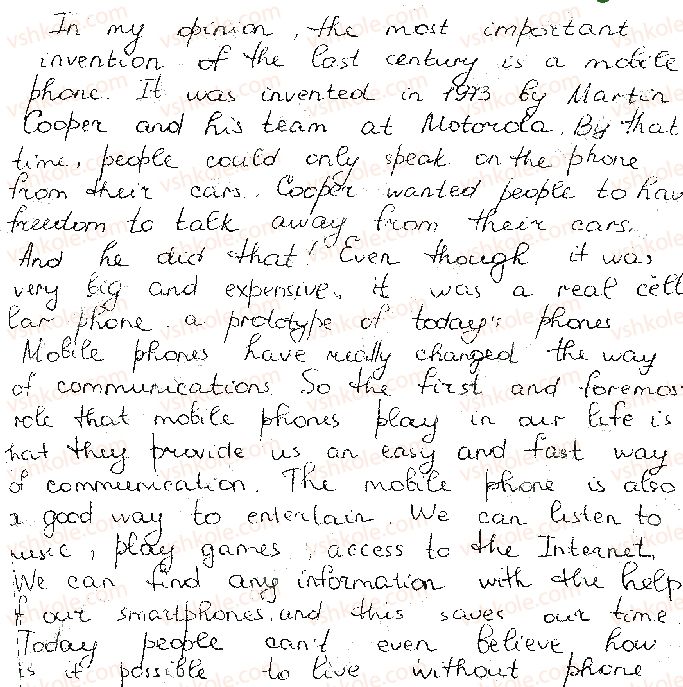 In my opinion, the most important
invention of the last century is a mobile
phone. It was invented in 1973 by Martin
Cooper and his team at Motorola. By that
time, people could only speak on the phone
from their cars. Cooper wanted people to hav
freedom to talk away from their cars.
And he did that! Even though it was
very big and expensive, it was a real cell
lar phone, a prototype of today's phones
Mobile phones have really changed the way
of communications. So the first and foremos
role that mobile phones play in our life is
hat they provide us an easy and fast way
of communication. The mobile phone is also
a good way to entertain. We can listen to
music, play games, access to the Internet.
We can find any information with the help
f our smartphones, and this saves our time.
Today people can't even believe, how
is it possible to live without phone